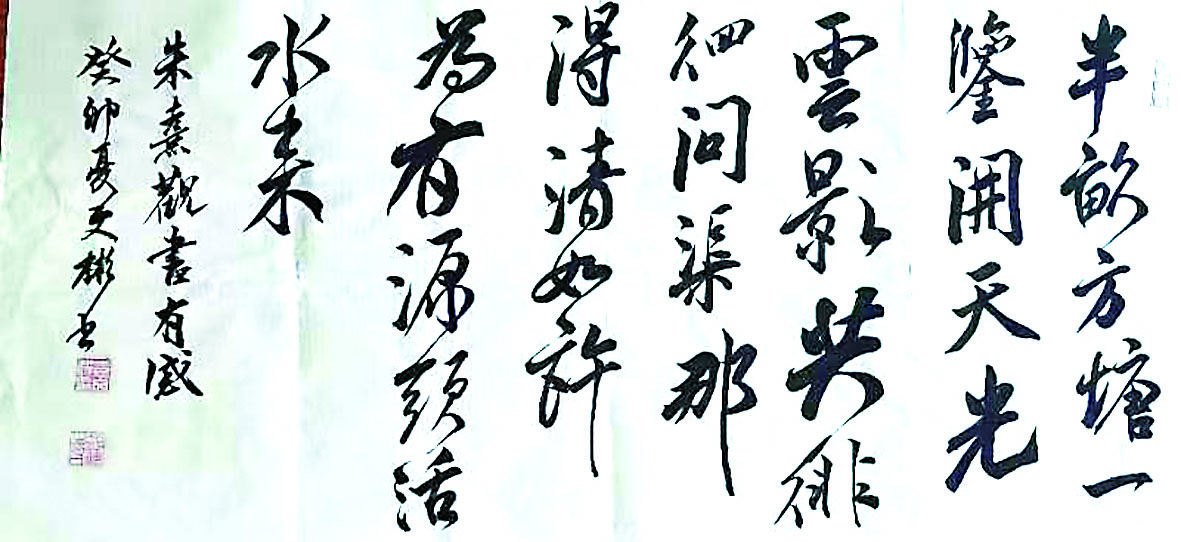 半畝方塘一
鑒開天光
雲影共徘
徊問渠那
得清如許
為有源頭活
水来
朱熹觀書有感
癸卯夏文彬书